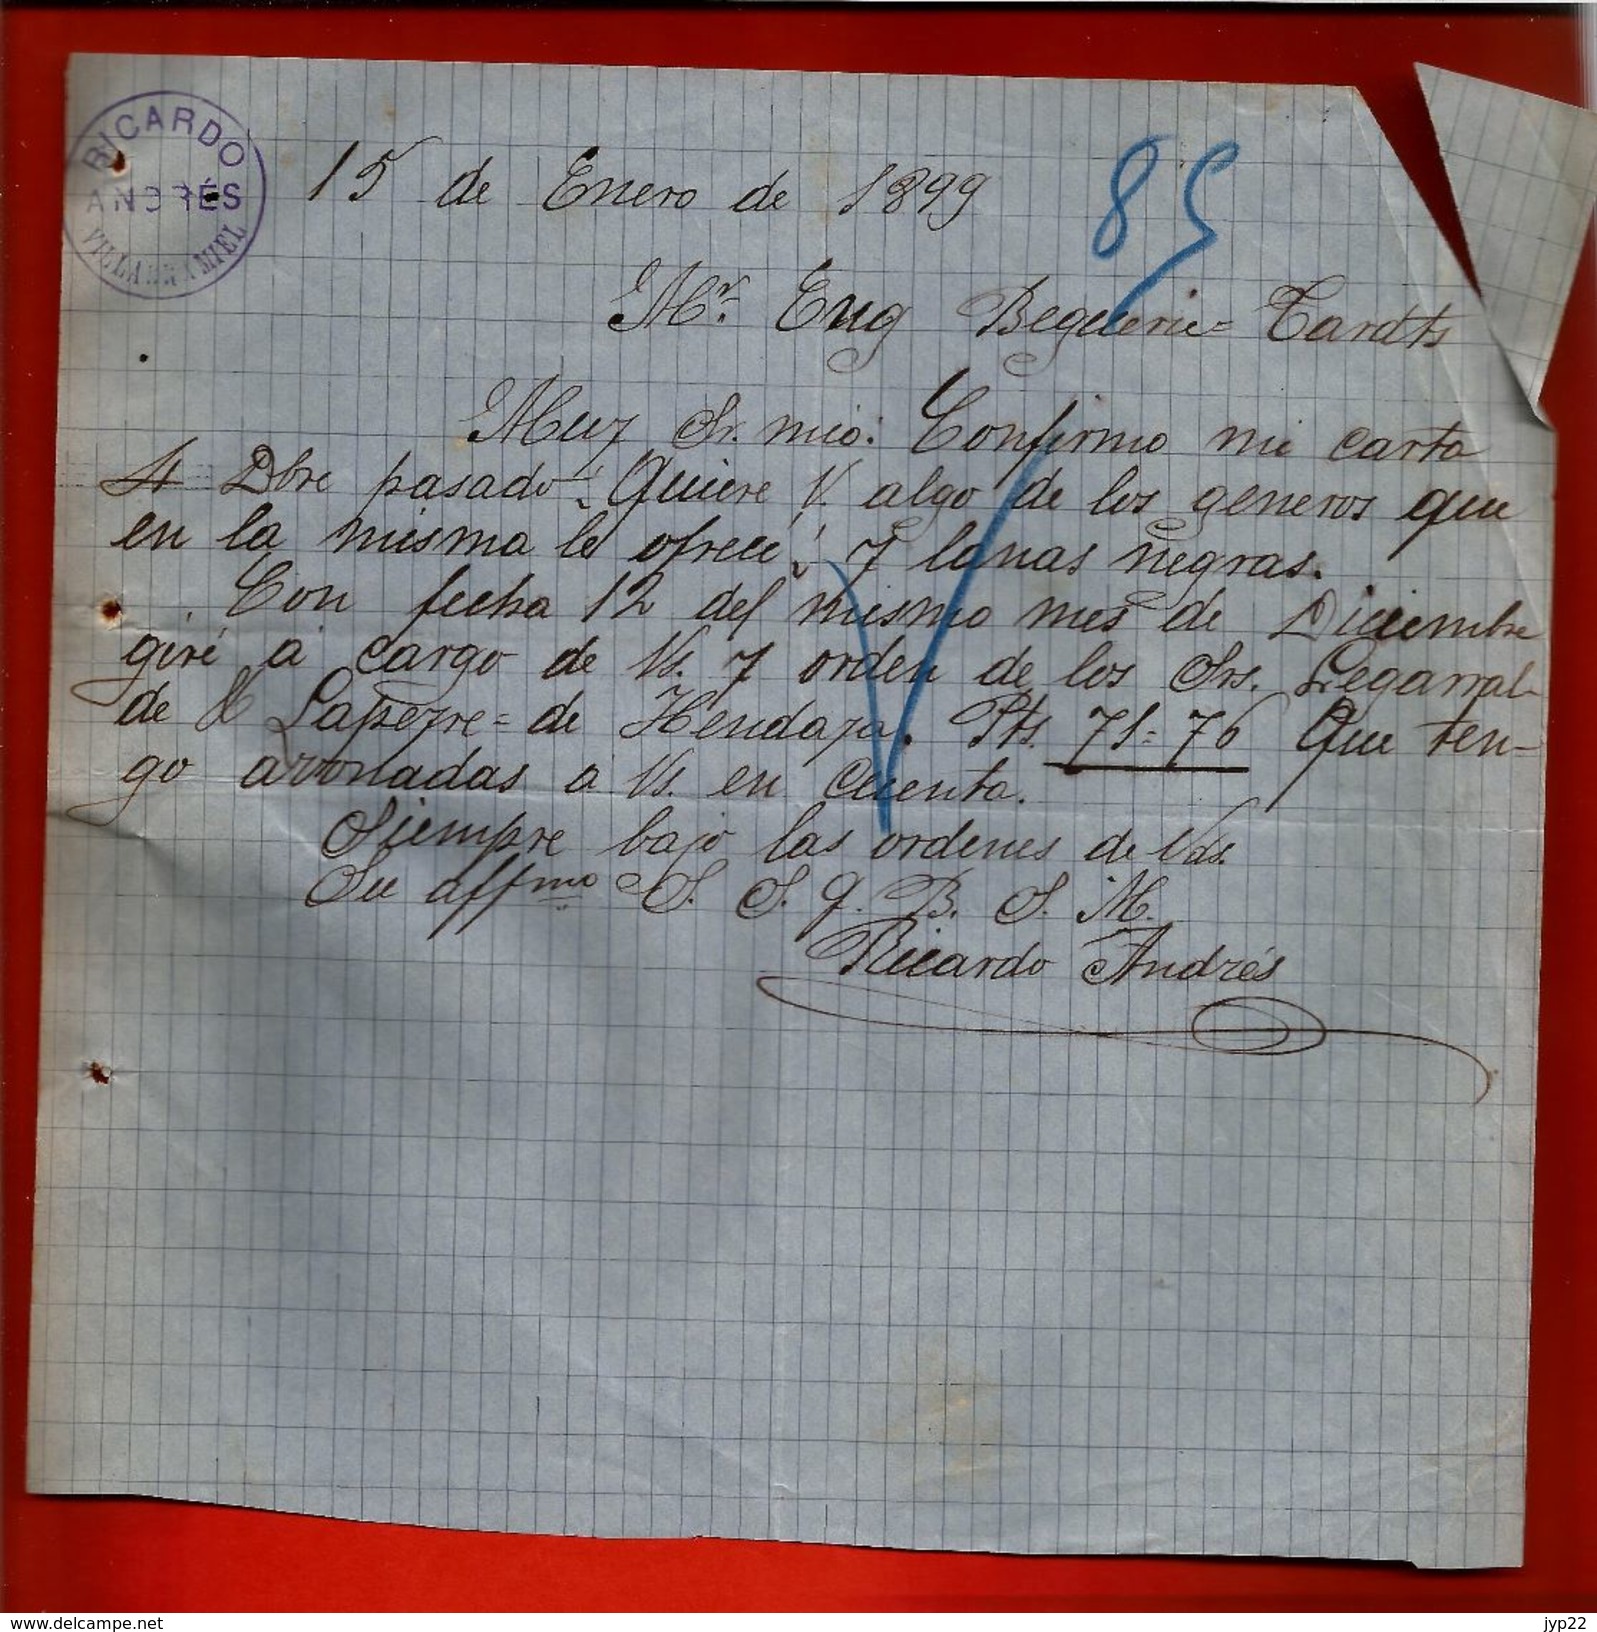 RICARDO
ANDRÉS
15 de Enero de 1899
85
Mr. Eug Beguerie = Tardts
Muy Sr. mio: Confirmo mi carta
4 Dbre pasado ¿Quiere V. algo de los generos que
en la misma le ofreci? y lanas negras.
Con fecha 12 del mismo mes de Diciembre
giré á cargo de Vs. y orden de los Srs. Legarral-
de Lapeyre = de Hendaya. Pts. 71=76 Que ten-
go abonadas á Vs. en cuenta.
Siempre bajo las ordenes de Vds.
Su affmo S. S. q. B. S. M.
Ricardo Andrés
www.delcampe.net
jyp22